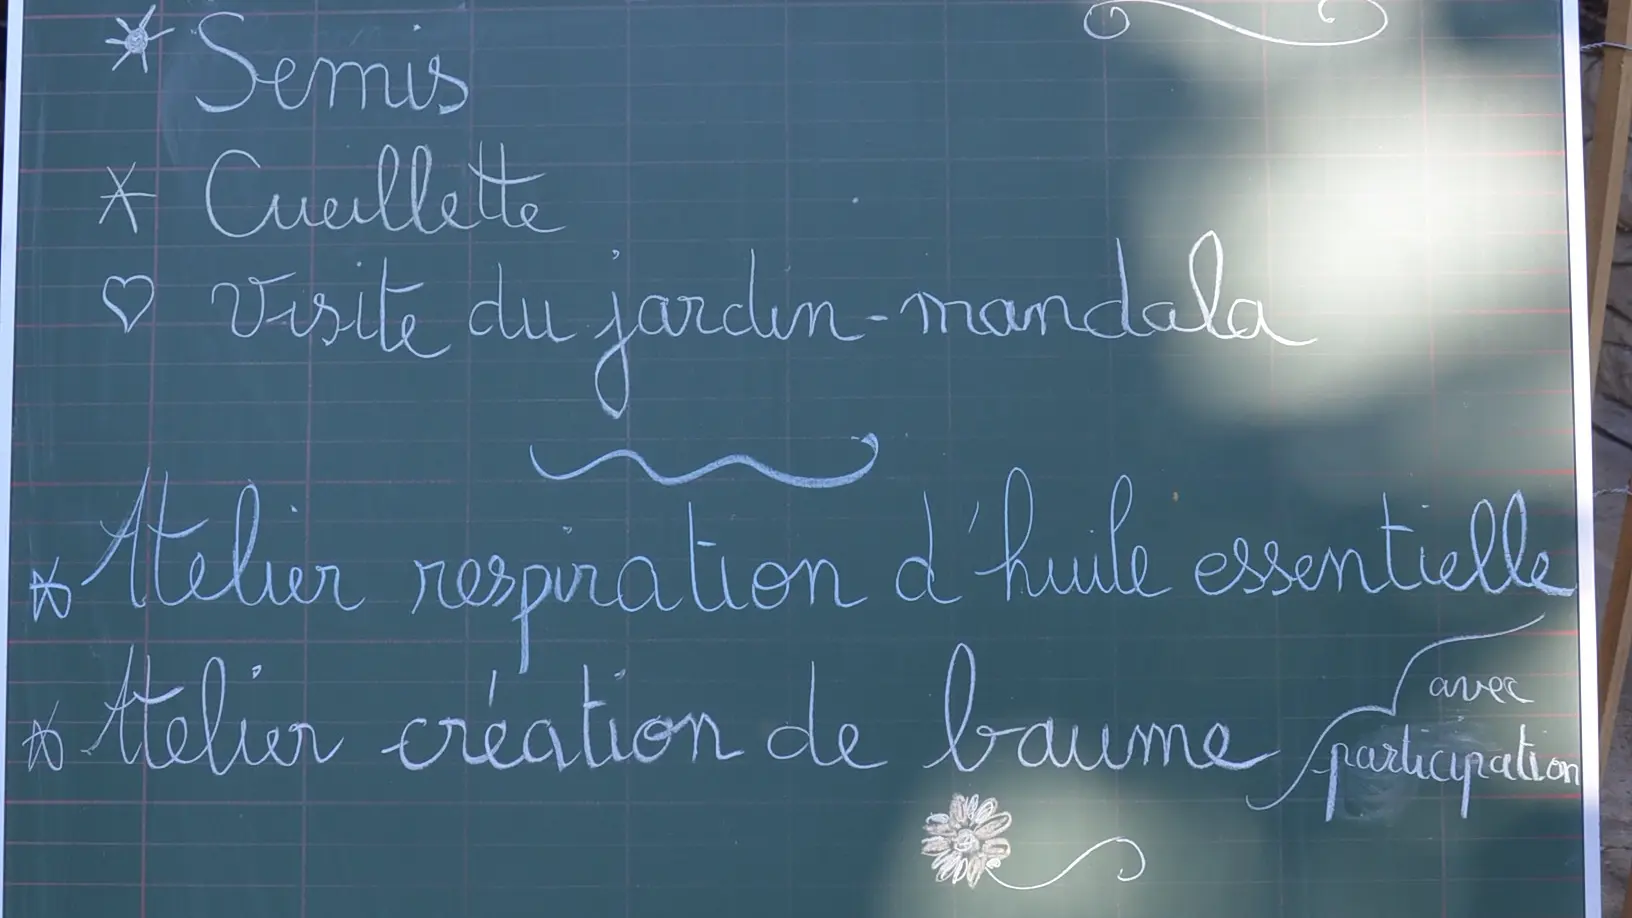 Semis
Cueillette
Visite du jardin-mandala
Atelier respiration d'huile essentielle
Atelier création de baume
avec
participation